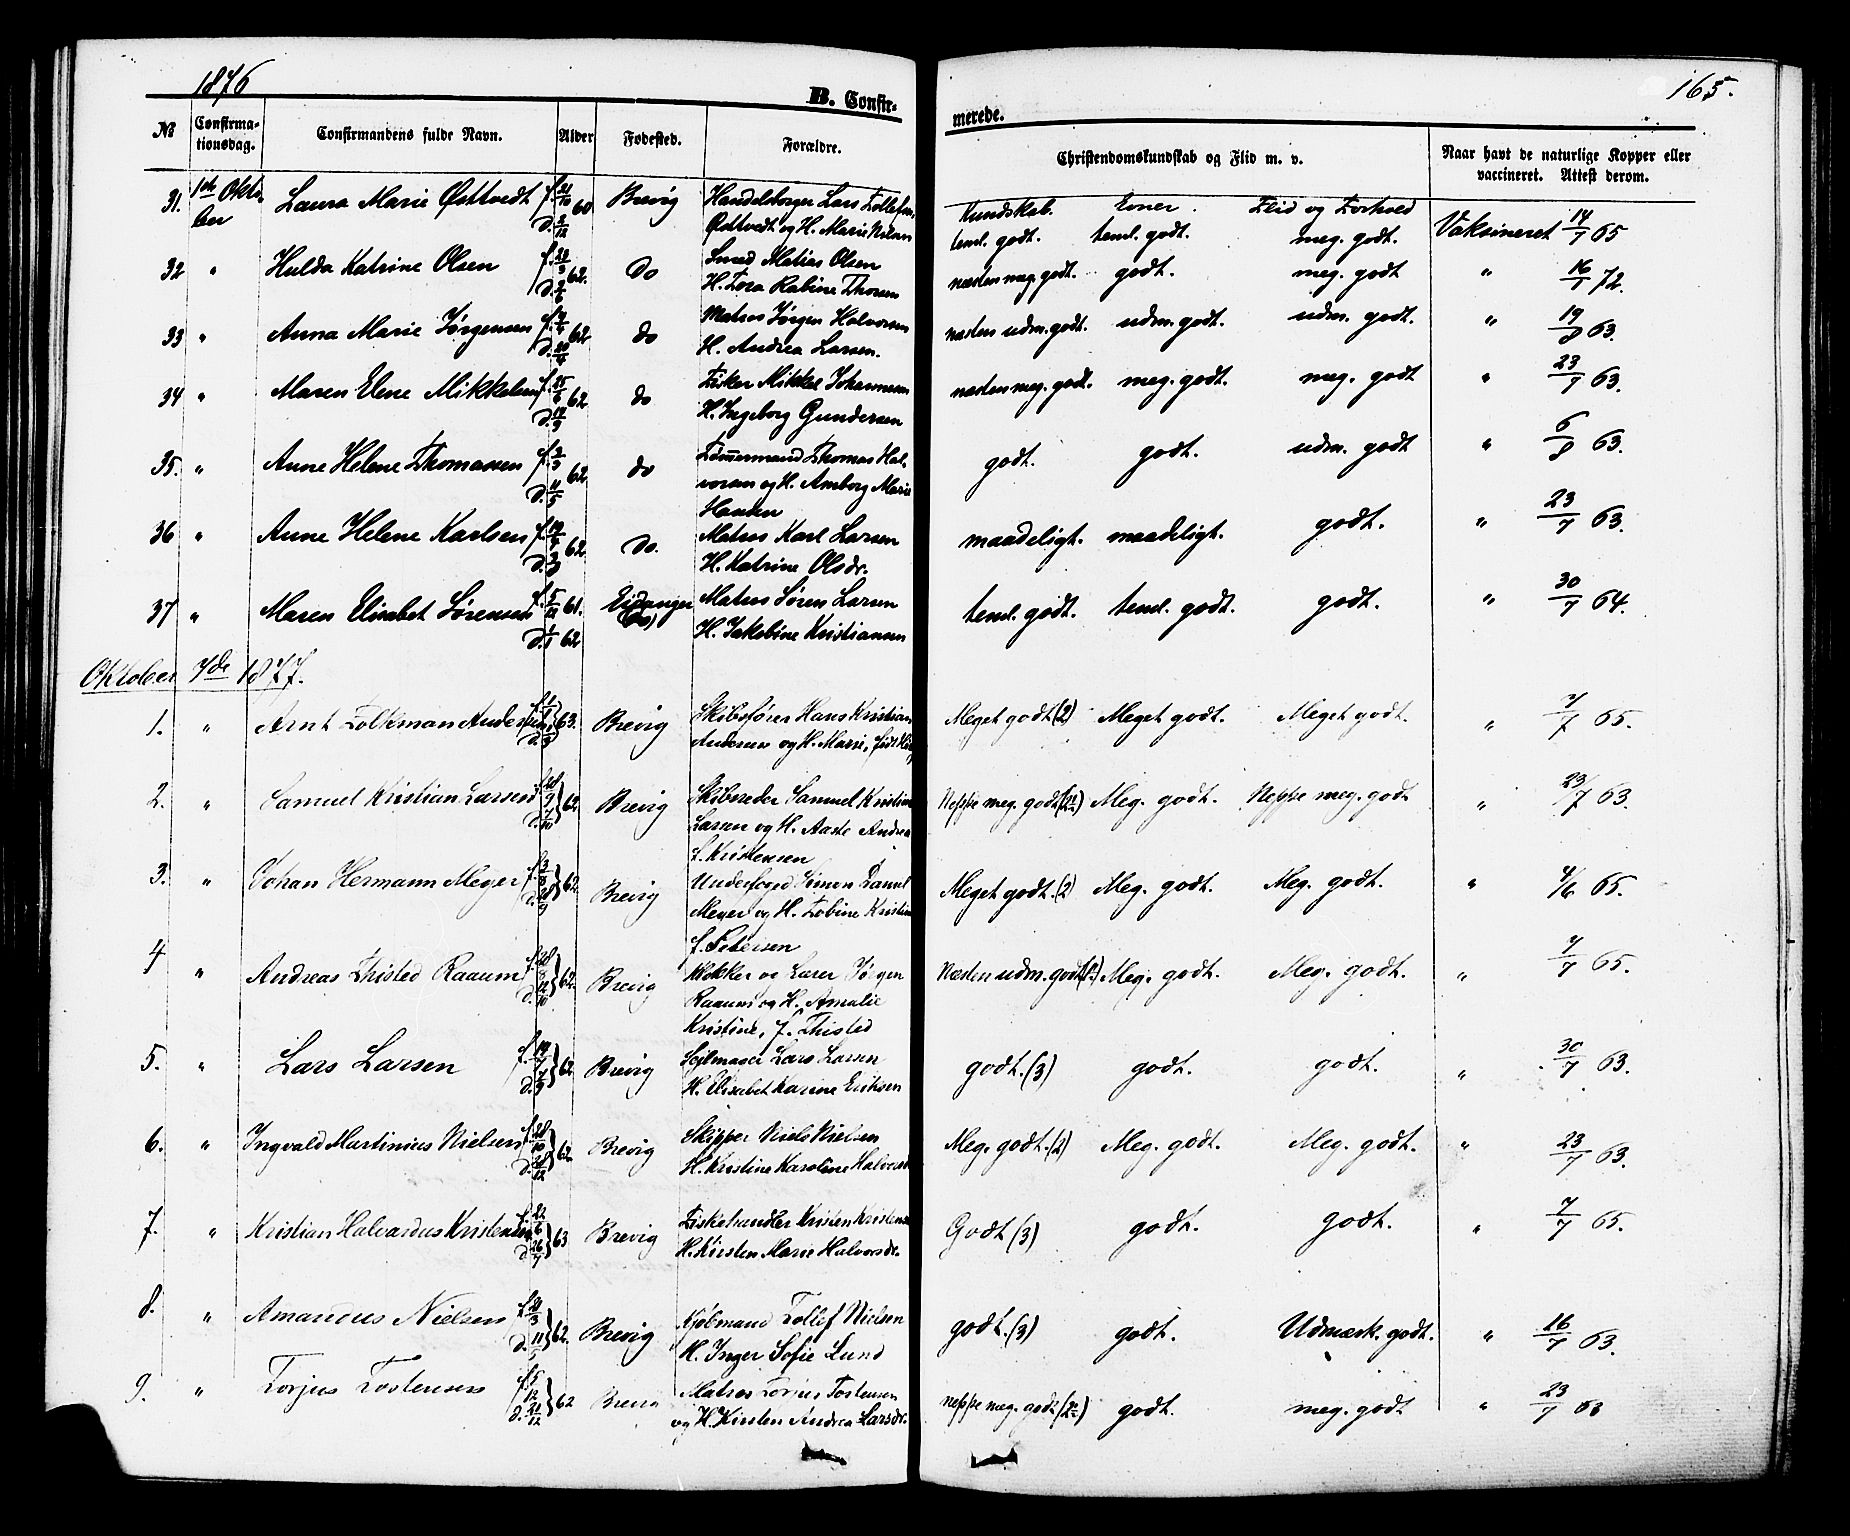 1876
165.
B. Confir-
merede.
№ Confirma-tionsdag. Confirmandens fulde Navn. Alder Fødested. Forældre. Christendomskundskab og Flid m. v. Naar havt de naturlige Kopper eller vaccineret. Attest derom.
Kundskab. Evner. Flid og Forhold
31. 1ste Okto-ber Laura Marie Østtvedt f. 21/10 60 d. 2/12 Brevig Handelsborger Lars Tollefsen Østtvedt og H. Marie Nilsen teml. godt. teml. godt. meg. godt. Vaksineret 14/7 65
32 " Hulda Katrine Olsen 62. Do Smed Matias Olsen H. Tora Rabine Thorsen næsten meg. godt. godt. meg. godt " 72.
33 " Anna Marie Jørgensen 62 do Matros Jørgen Halvorsen H. Andrea Larsen. næsten udm. godt. udm. godt. udm. godt. " 19/8 63.
34 " Maren Elene Mikkelsen 62 do Fisker Mikkel Johannesen H. Ingeborg Gundersen næsten meg. godt. meg. godt. meg. godt " 23/7 63.
35. " Anne Helene Thomassen f. 2/3 62 d. 11/5 do Tømmermand Thomas Hal-vorsen og H. Amborg Marie Hansen godt. godt. udm. godt " 6/8 63.
36 " Anne Helene Karlsen 62. Do. Matros Karl Larsen H. Katrine Olsdr. maadeligt. maadeligt. godt. " 23/7 63.
37 " Maren Elisabet Sørensen f. 5/11 61. d. 1/1 62 Eidanger Matros Søren Larsen H. Jakobine Kristiansen teml. godt. teml. godt. godt. " 30/7 64.
Oktober 7de 1877.
1. " Arnt Tolkman Andersen 63. Brevig Skibsfører Hans Kristian Andersen og H. Marie, født Meget godt (2) Meget godt. Meget godt. " 7/7 65.
2. " Samuel Kristian Larsen 62 Brevig Skibsreder Samuel Kristian Larsen og H. Aaste Andrea f. Kristensen Neppe meg. godt Meg. godt. Neppe meg. godt " 23/7 63.
3. " Johan Hermann Meyer 62. Brevig Underfoged Simon Daniel Meyer og H. Tobine Kristine f. Petersen Meget godt. (2) Meg. godt. Meg. godt. " 7/6 65.
4 " Andreas Thisted Raaum 62. Brevig Klokker og Lærer Jørgen Raaum og H. Amalie Kristine, f. Thisted Næsten udm. godt Meg. godt. Meg. godt. " 7/7 65.
5. " Lars Larsen 62 Brevig Sejlmager Lars Larsen H. Elisabet Karine Eriksen godt. (3) godt. godt. " 30/7 63.
6. " Ingvald Martinius Nielsen 62. Brevig Skipper Niels Nielsen H. Kristine Karoline Halvors Meg. godt. (2) Meg. godt. Meg. godt. " 23/7 63.
7. " Kristian Halvardus Kristensen f. 22/6 63 d. 26/7 Brevig Fiskehandler Kristen Kristensen H. Kirsten Marie Halvorsdr. Godt (3) godt. godt. " 7/7 65.
8. " Amandus Nielsen 62. Brevig Kjøbmand Tollef Nielsen H. Inger Sofie Lund godt. (3) godt. Udmærk. godt. " 16/7 63.
9. " Torjus Tostensen f. 5/12 62 d. 21/12 Brevig Matros Torjus Tostensen og H. Kirsten Andrea Larsdr. neppe meg. godt godt. meg. godt " 23/7 63